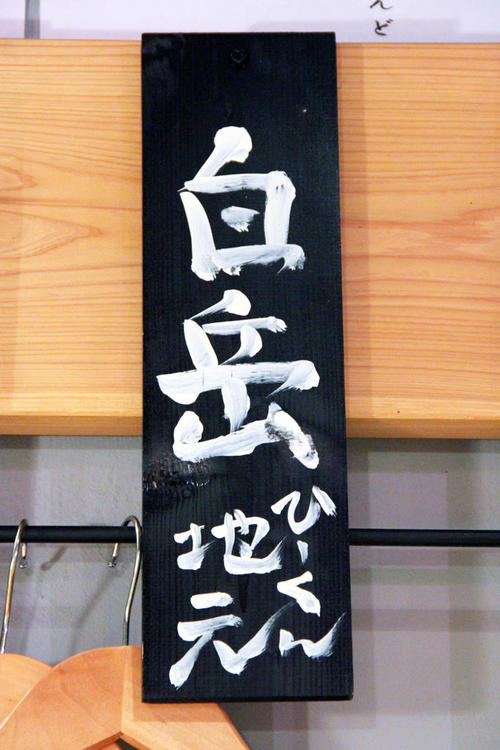 んど
白岳
ひーくん
地元